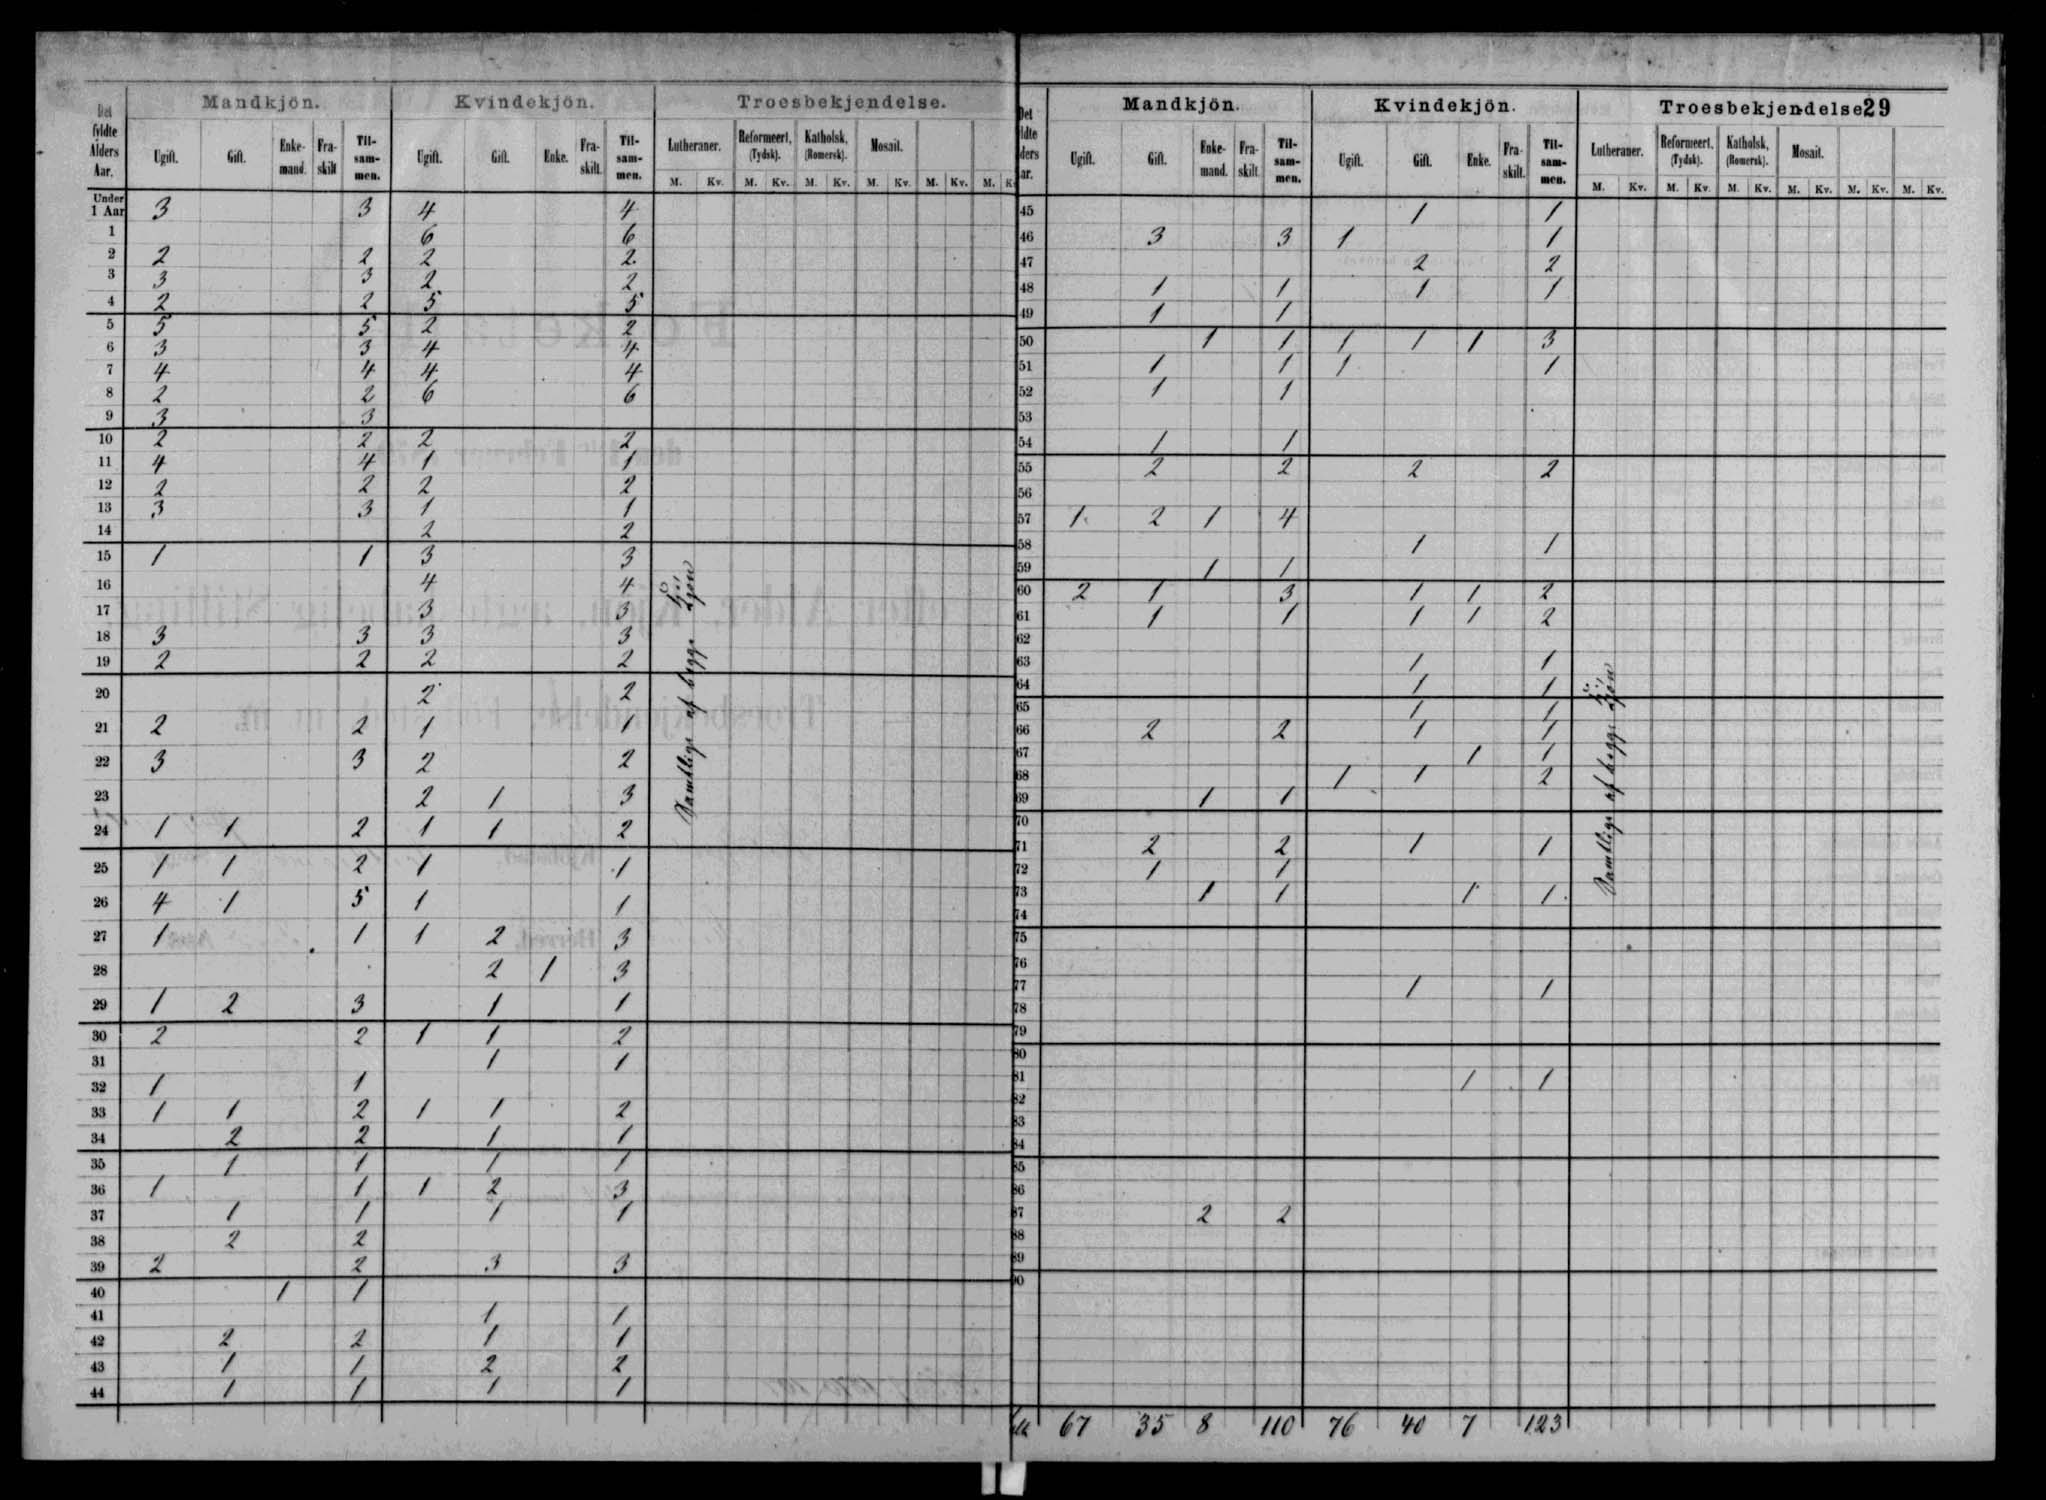 Mandkjön. Kvindekjön. Troesbekjendelse.
Det fyldte Alders Aar. Ugift. Gift. Enke-mand. Fra-skilt Til-sam-men. Ugift. Gift. Enke. Fra-skilt. Til-sam-men. Lutheraner. Reformeert, (Tydsk). Katholsk, (Romersk). Mosait.
M. Kv. M. Kv. M. Kv. M. Kv. M. Kv. M. Kv
Under 1 Aar 3 3 4 4
1 6 6
2 2 2 2 2
3 3 3 2 2
4 2 2 5 5
5 5 5 2 2
6 3 3 4 4
7 4 4 4 4
8 2 2 6 6
9 3 3
10 2 2 2 2
11 4 4 1 1
12 2 2 2 2
13 3 3 1 1
14 2 2
15 1 1 3 3
16 4 4
17 3 3
18 3 3 3 3
19 2 2 2 2
20 2 2
21 2 2 1 1
22 3 3 2 2
23 2 1 3
24 1 1 2 1 1 2
25 1 1 2 1 1
26 4 1 5 1 1
27 1 1 1 2 3
28 2 1 3
29 1 2 3 1 1
30 2 2 1 1 2
31 1 1
32 1 1
33 1 1 2 1 1 2
34 2 2 1 1
35 1 1 1 1
36 1 1 1 2 3
37 1 1 1 1
38 2 2
39 2 2 3 3
40 1 1
41 1 1
42 2 2 1 1
43 1 1 2 2
44 1 1 1 1
Samtlige af begge Kjön
Mandkjön. Kvindekjön. Troesbekjendelse 29
Det ldte ders ar. Ugift. Gift. Enke-mand. Fra-skilt. Til-sam-men. Ugift. Gift. Enke. Fra-skilt. Til-sam-men. Lutheraner. Reformeert, (Tydsk). Katholsk, (Romersk). Mosait.
M. Kv. M. Kv. M. Kv. M. Kv. M. Kv. M. Kv.
45 1 1
46 3 3 1 1
47 2 2
48 1 1 1 1
49 1 1
50 1 1 1 1 1 3
51 1 1 1 1
52 1 1
53
54 1 1
55 2 2 2 2
56
57 1 2 1 4
58 1 1
59 1 1
60 2 1 3 1 1 2
61 1 1 1 1 2
62
63 1 1
64 1 1
65 1 1
66 2 2 1 1
67 1 1
68 1 1 2
69 1 1
70
71 2 2 1 1
72 1 1
73 1 1 1 1
74
75
76
77 1 1
78
79
80
81 1 1
82
83
84
85
86
87 2 2
88
89
90
67 35 8 110 76 40 7 123
Samtlige af begge Kjön